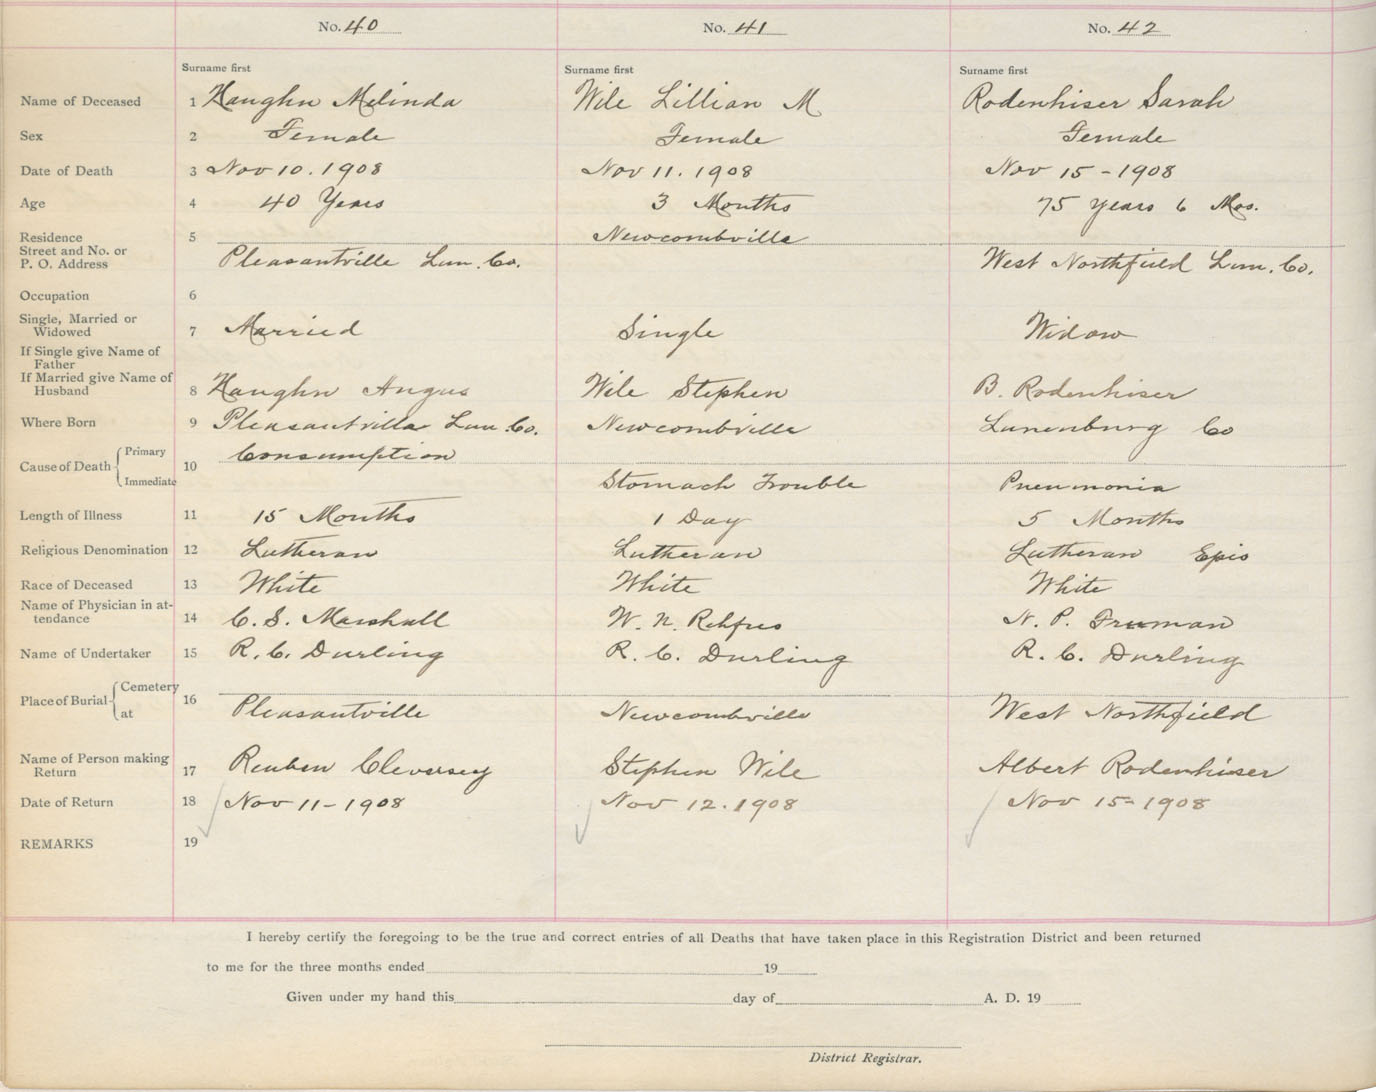 No. 40 No. 41 No. 42
Surname first Surname first Surname first
Name of Deceased 1 Haughn Melinda Wile Lillian M Rodenhiser Sarah
Sex 2 Female Female Female
Date of Death 3 Nov 10. 1908 Nov 11. 1908 Nov 15 - 1908
Age 4 40 Years 3 Months 75 Years 6 Mos.
Residence 5 Newcombville
Street and No. or
P. O. Address Pleasantville Lun. Co. West Northfield Lun. Co.
Occupation 6
Single, Married or
Widowed 7 Married Single Widow
If Single give Name of
Father
If Married give Name of
Husband 8 Haughn Angus Wile Stephen B. Rodenhiser
Where Born 9 Pleasantville Lun. Co. Newcombville Lunenburg Co
Cause of Death Primary 10 Consumption
Immediate Stomach Trouble Pneumonia
Length of Illness 11 15 Months 1 Day 5 Months
Religious Denomination 12 Lutheran Lutheran Lutheran Epis
Race of Deceased 13 White White White
Name of Physician in at-
tendance 14 C. S. Marshall W. N. Rehfus N. P. Freeman
Name of Undertaker 15 R. C. Durling R. C. Durling R. C. Durling
Place of Burial Cemetery 16
at Pleasantville Newcombville West Northfield
Name of Person making
Return 17 Reuben Cleversey Stephen Wile Albert Rodenhiser
Date of Return 18 Nov 11 - 1908 Nov 12. 1908 Nov 15 - 1908
REMARKS 19
I hereby certify the foregoing to be the true and correct entries of all Deaths that have taken place in this Registration District and been returned
to me for the three months ended 19
Given under my hand this day of A. D. 19
District Registrar.